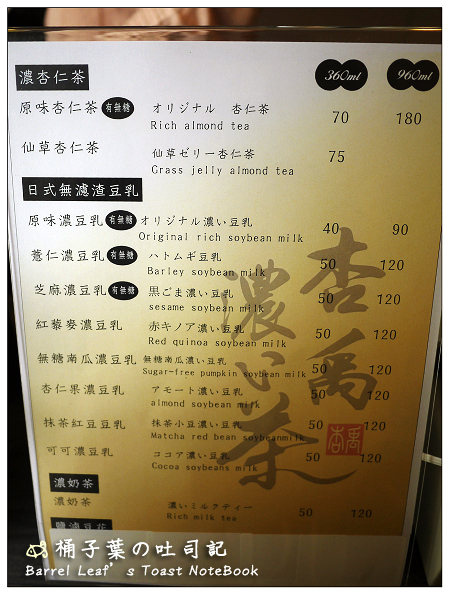 濃杏仁茶 360ml 960ml
原味杏仁茶 有無糖 オリジナル 杏仁茶 70 180
Rich almond tea
仙草杏仁茶 仙草ゼリー杏仁茶 75
Grass jelly almond tea
日式無濾渣豆乳
原味濃豆乳 有無糖 オリジナル濃い豆乳 40 90
Original rich soybean milk
薏仁濃豆乳 有無糖 ハトムギ豆乳 50 120
Barley soybean milk
芝麻濃豆乳 有無糖 黒ごま濃い豆乳 50 120
sesame soybean milk
紅藜麥濃豆乳 赤キノア濃い豆乳 50 120
Red quinoa soybean milk
無糖南瓜濃豆乳 無糖南瓜濃い豆乳 50 120
Sugar-free pumpkin soybean milk
杏仁果濃豆乳 アモート濃い豆乳 50 120
almond soybean milk
抹茶紅豆豆乳 抹茶小豆濃い豆乳 50 120
Matcha red bean soybeanmilk
可可濃豆乳 ココア濃い豆乳 50 120
Cocoa soybeans milk
濃奶茶
濃奶茶 濃いミルクティー 50 120
Rich milk tea
鹽滷豆花
杏禹
濃い茶
杏禹
桶子葉の吐司記
Barrel Leaf's Toast NoteBook